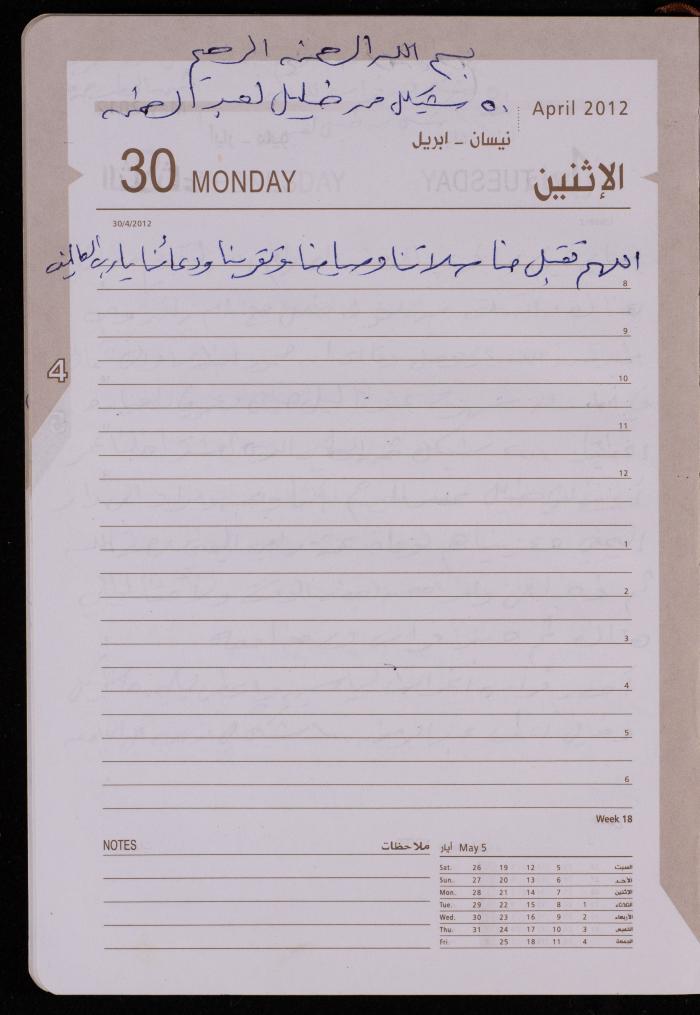 بسم الله الرحمن الرحيم
٥٠ شيكل من خليل لعبد الرحمن
April 2012
نيسان - ابريل
30 MONDAY الإثنين
30/4/2012
اللهم تقبل منا صلاتنا وصيامنا وتقربنا ودعائنا يا رب العالمين
8
9
4
10
11
12
1
2
3
4
5
6
Week 18
NOTES ملاحظات
May 5 أيار
Sat. 26 19 12 5 السبت
Sun. 27 20 13 6 الأحد
Mon. 28 21 14 7 الإثنين
Tue. 29 22 15 8 1 الثلاثاء
Wed. 30 23 16 9 2 الأربعاء
Thu. 31 24 17 10 3 الخميس
Fri. 25 18 11 4 الجمعة